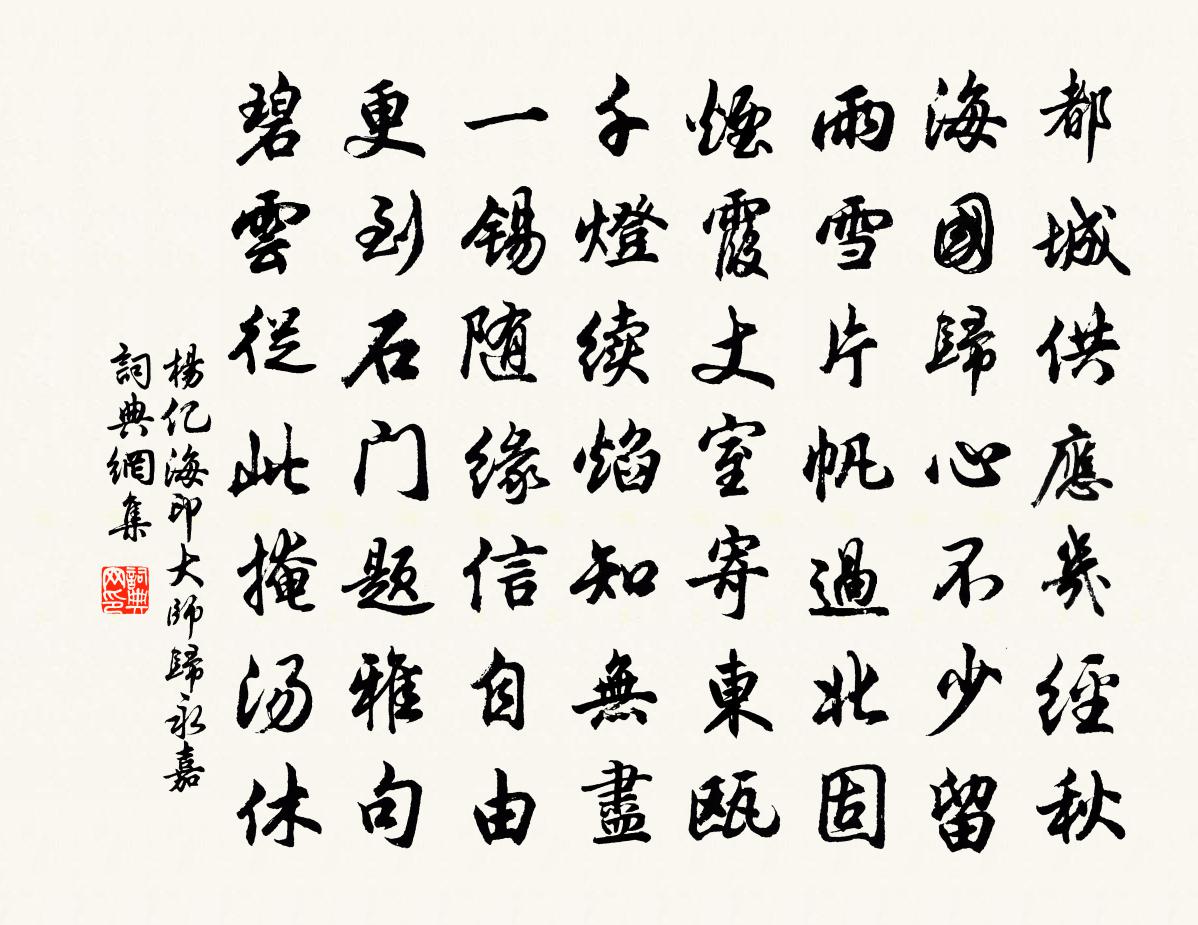 都城供應幾經秋
海國歸心不少留
雨雪片帆過北固
煙霞丈室寄東瓯
千燈续焰知無盡
一锡随缘信自由
更到石门题雅句
碧雲從此掩汤休
楊亿海印大師歸永嘉
詞典網集
詞典